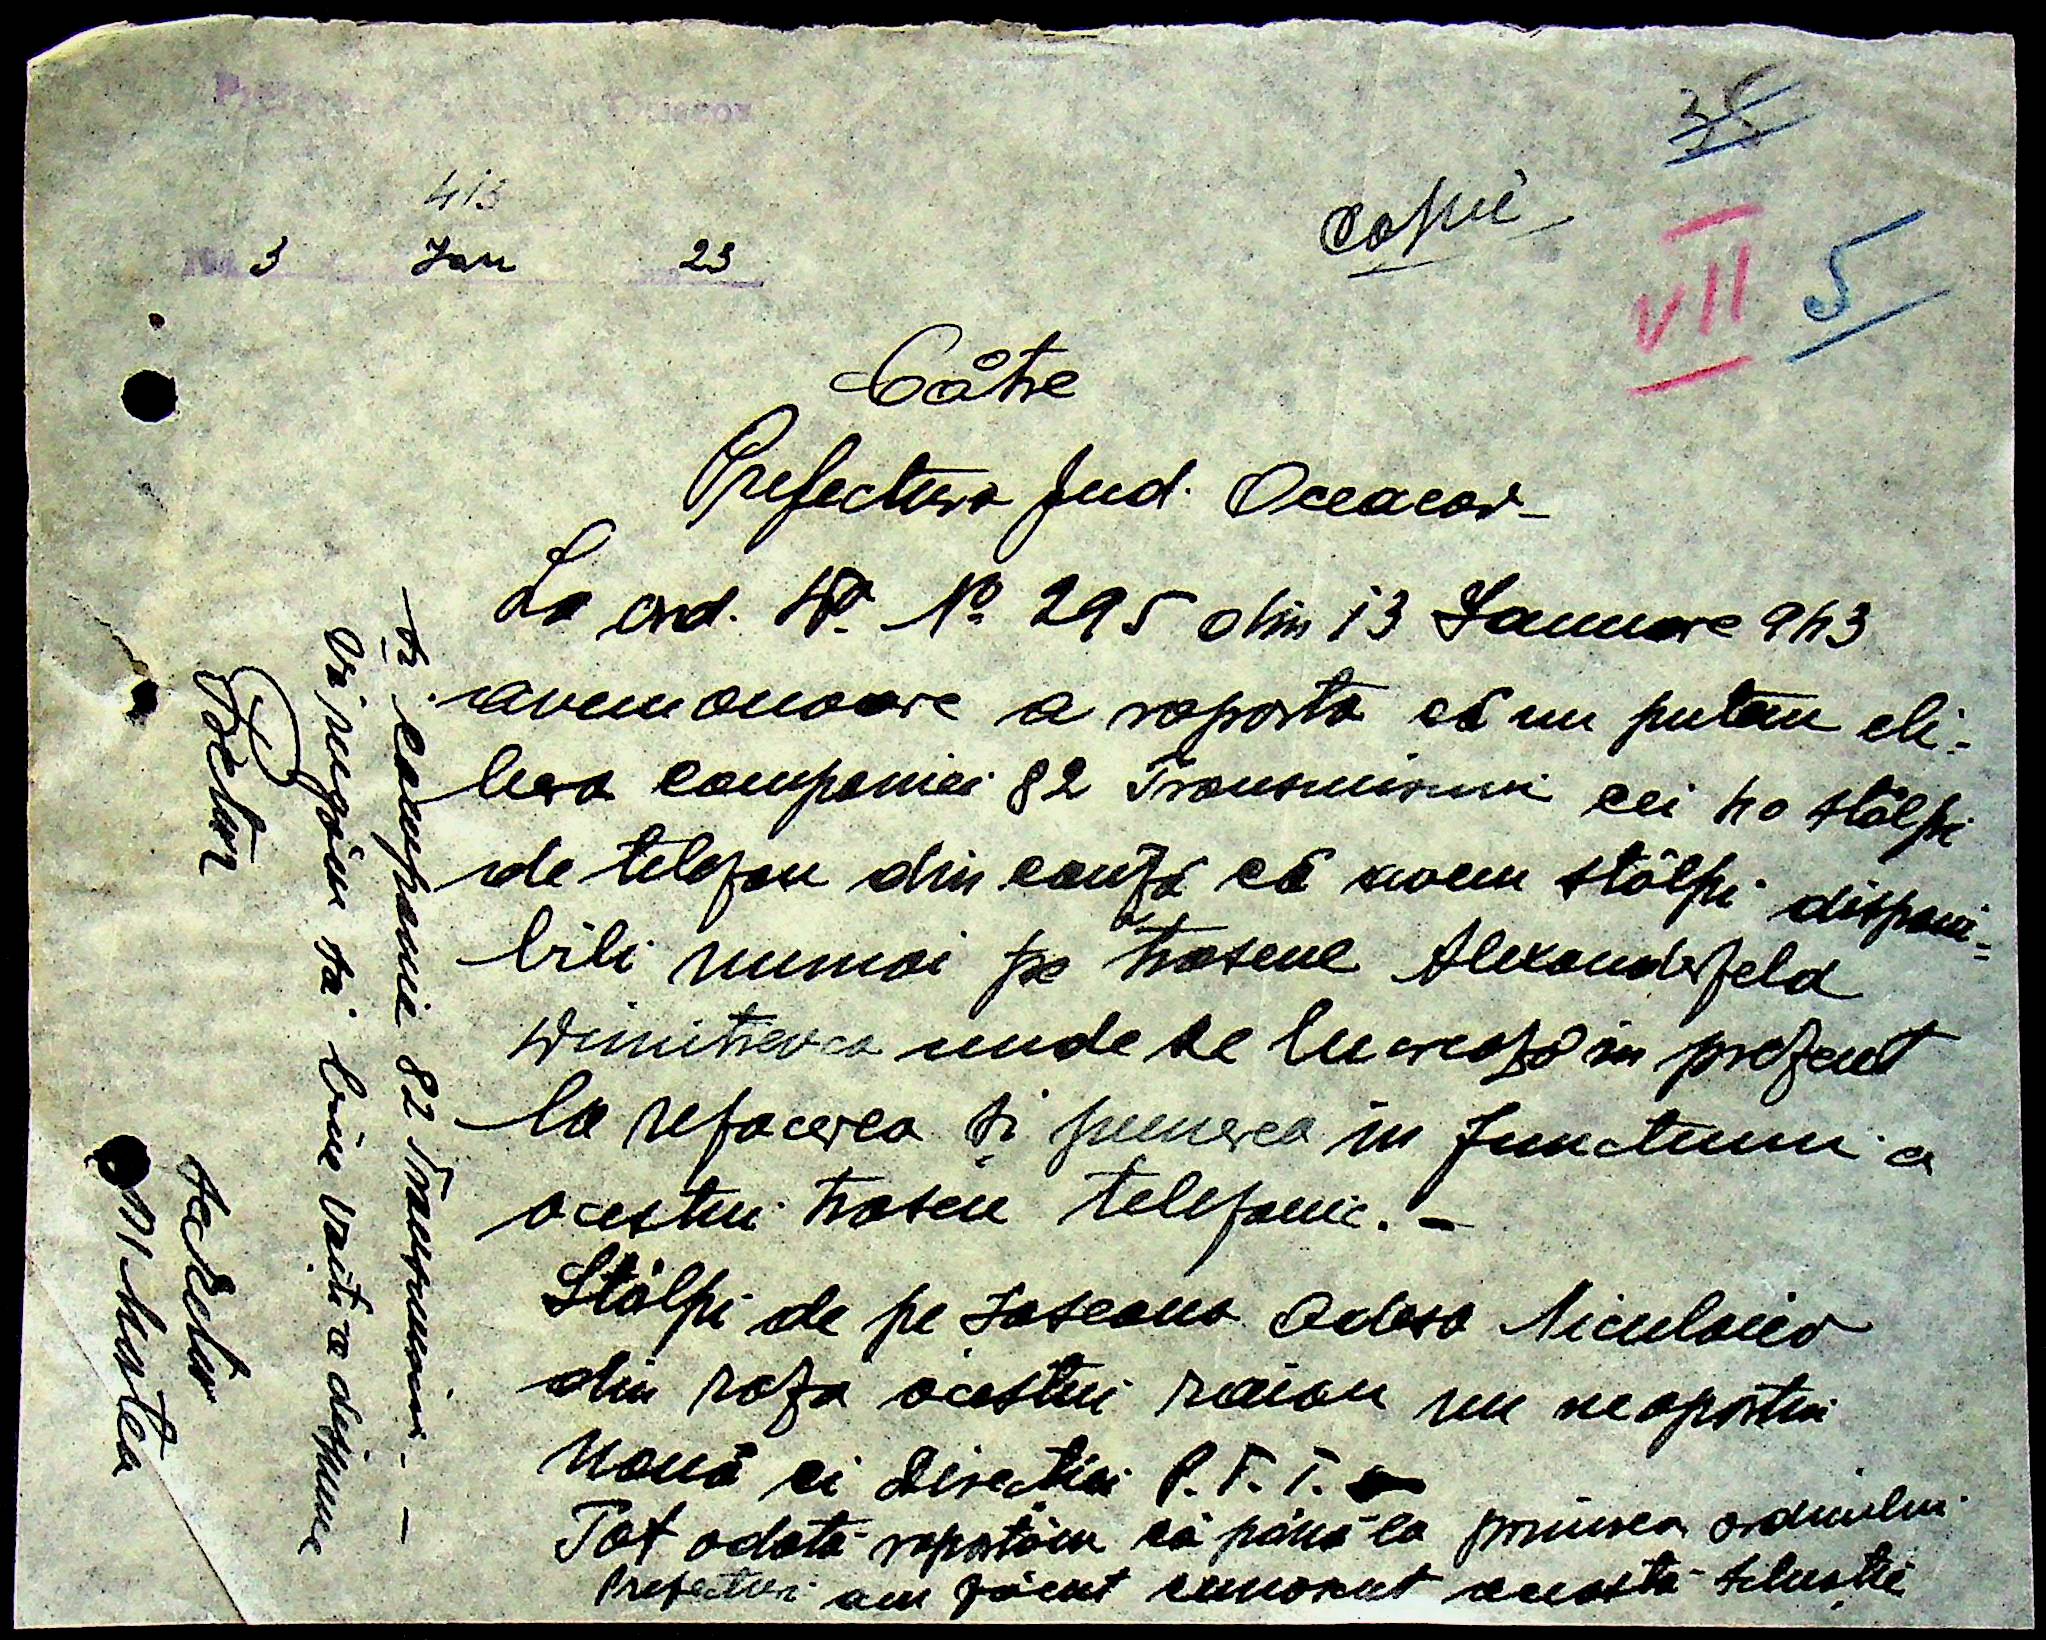 413
194 3 Ian 23
Copie
35
VII 5
Către
Prefectura Jud. Oceacov
La ord. Dv. No. 295 din 13 Ianuare 943
avem onoare a raporta că nu putem eli-
bera companiei 82 Transmisiuni cei 40 stâlpi
de telefon din cauză că avem stâlpi disponi-
bili numai pe traseul Alexanderfeld
Dimitrevca unde se lucrează în prezent
la refacerea și punerea în functiuni a
acestui traseu telefonic. -
Stâlpi de pe șoseaua Odesa Niculaiev
din raza acestui raion nu ne aparțin
nouă ci Direcției P.T.T.
Tot odată raportăm că până la primirea ordinului
Prefecturi am făcut cunoscut aceasta situație
și companiei 82 Transmisiuni. -
Vă rugăm să bine voiți a dispune
Pretor
Secretar
M